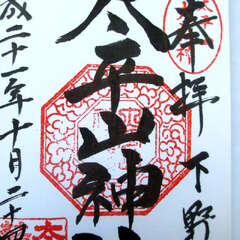 奉拝 下野
太平山神
成二十一年十月二十四
太